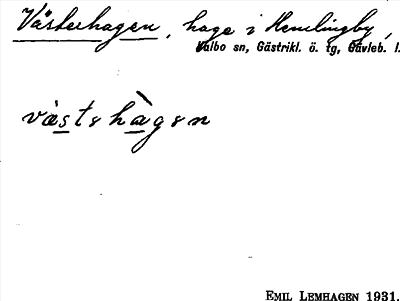 Västerhagen, hage i Hemlingby,
Valbo sn, Gästrikl. ö. tg, Gävleb. l.
vàstshàgsn
EMIL LEMHAGEN 1931.